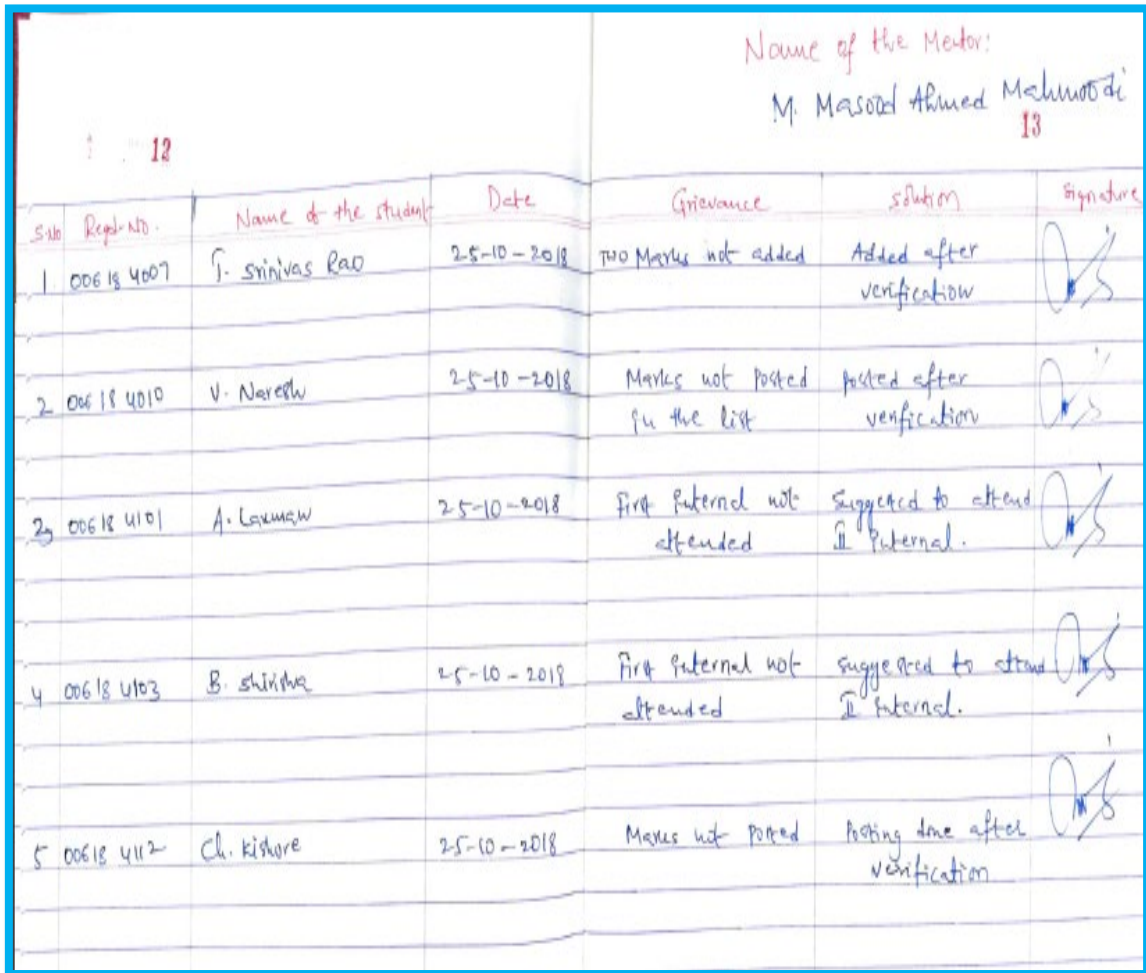 Name of the Mentor:
M. Masood Ahmed Mahmoodi
12
13
S.No Regd. No. Name of the student Date Grievance solution signature
1 00618 4007 T. srinivas Rao 25-10-2018 TWO Marks not added Added after
verification
2 00618 4010 V. Naresh 25-10-2018 Marks not Posted posted after
in the list verification
3 00618 4101 A. Laxman 25-10-2018 First Internal not suggested to attend
attended II Internal.
4 00618 4103 B. shirisha 25-10-2018 First Internal not suggested to attend
attended II Internal.
5 00618 4112 Ch. Kishore 25-10-2018 Marks not posted Posting done after
verification